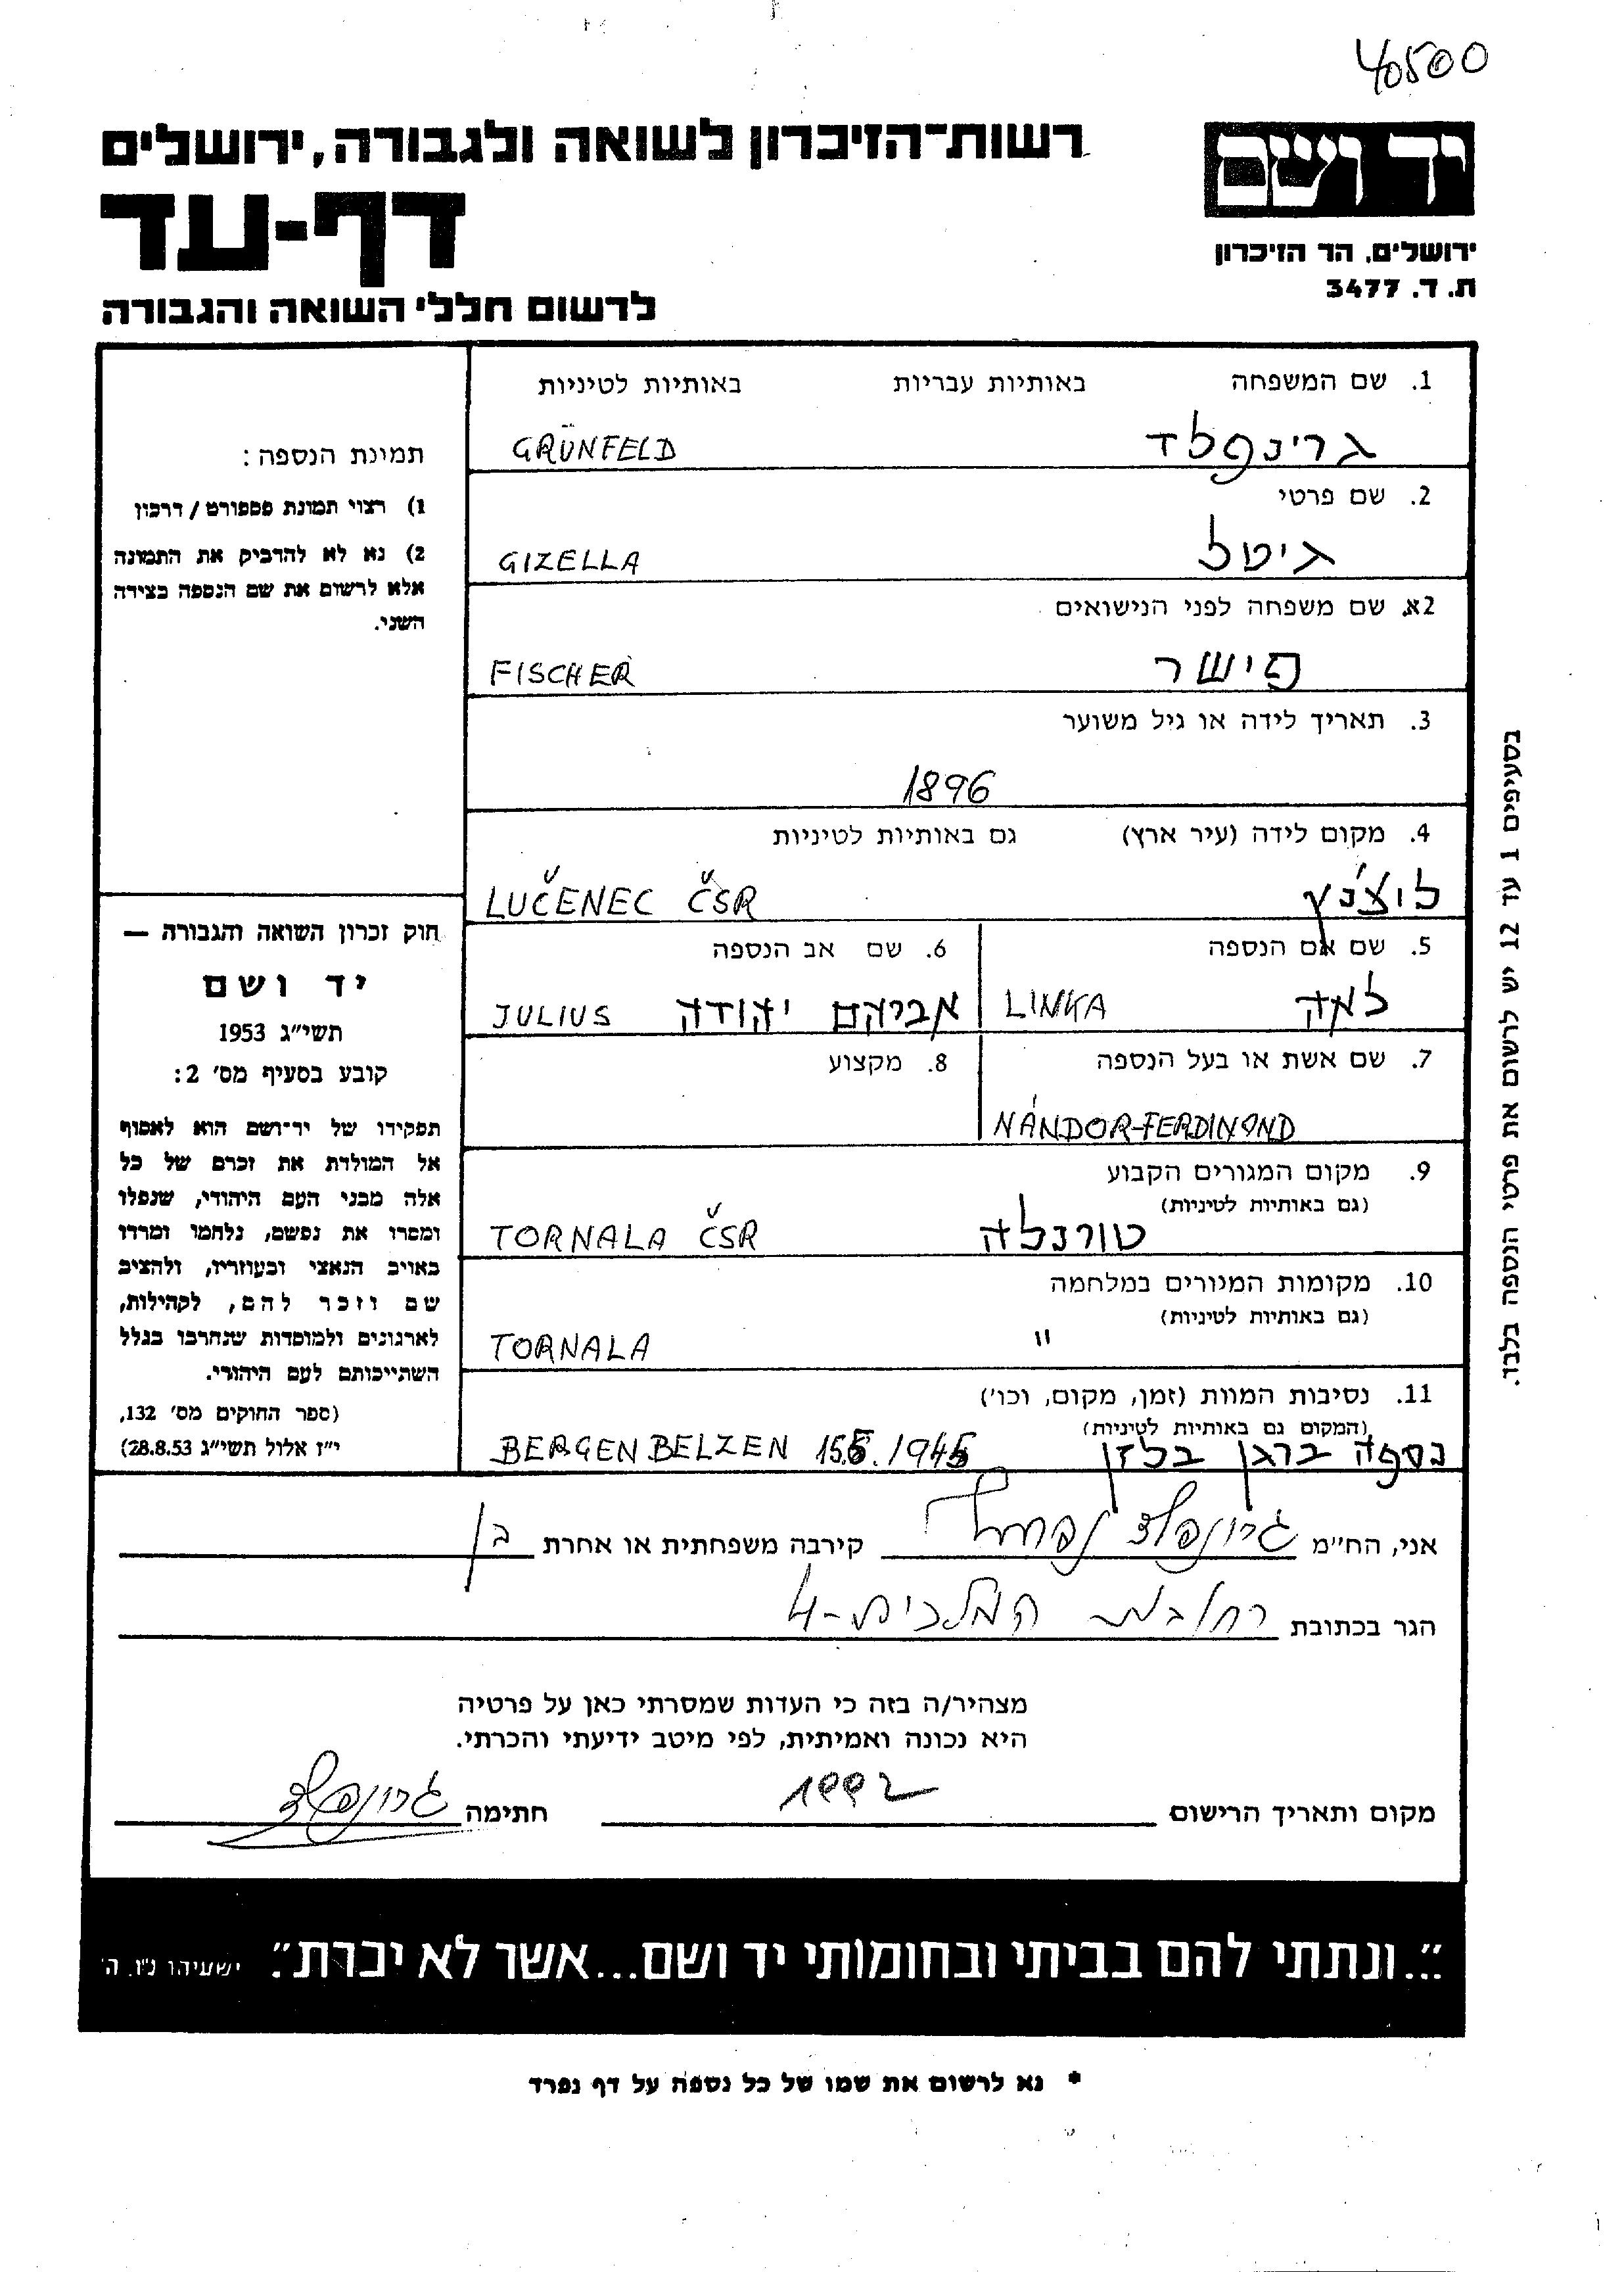 40500
רשות־הזיכרון לשואה ולגבורה, ירושלים
יד ושם
דף-עד
ירושלים, הר הזיכרון
ת. ד. 3477
לרשום חללי השואה והגבורה
1. שם המשפחה באותיות עבריות באותיות לטיניות
גרינפלד GRÜNFELD
2. שם פרטי
גיטל GIZELLA
2א. שם משפחה לפני הנישואים
פישר FISCHER
3. תאריך לידה או גיל משוער
1896
4. מקום לידה (עיר ארץ) גם באותיות לטיניות
לוצ'נץ LUČENEC ČSR
5. שם אם הנספה
לאה LINKA
6. שם אב הנספה
אברהם יהודה JULIUS
7. שם אשת או בעל הנספה
NÁNDOR-FERDINAND
8. מקצוע
9. מקום המגורים הקבוע
(גם באותיות לטיניות)
טורנלה TORNALA ČSR
10. מקומות המגורים במלחמה
(גם באותיות לטיניות)
" TORNALA
11. נסיבות המוות (זמן, מקום, וכו')
(המקום גם באותיות לטיניות)
נספה ברגן בלזן BERGEN BELZEN 1945
תמונת הנספה:
1) רצוי תמונת פספורט / דרכון
2) נא לא להדביק את התמונה
אלא לרשום את שם הנספה בצידה
השני.
חוק זכרון השואה והגבורה —
יד ושם
תשי"ג 1953
קובע בסעיף מס' 2:
תפקידו של יד־ושם הוא לאסוף
אל המולדת את זכרם של כל
אלה מבני העם היהודי, שנפלו
ומסרו את נפשם, נלחמו ומרדו
באויב הנאצי ובעוזריו, ולהציב
שם וזכר להם, לקהילות,
לארגונים ולמוסדות שנחרבו בגלל
השתייכותם לעם היהודי.
(ספר החוקים מס' 132,
י"ז אלול תשי"ג 28.8.53)
בסעיפים 1 עד 12 יש לרשום את פרטי הנספה בלבד.
אני, הח"מ גרונפלד נפתלי קירבה משפחתית או אחרת בן
הגר בכתובת רחובות 4-
מצהיר/ה בזה כי העדות שמסרתי כאן על פרטיה
היא נכונה ואמיתית, לפי מיטב ידיעתי והכרתי.
מקום ותאריך הרישום 1992 חתימה גרונפלד
"...ונתתי להם בביתי ובחומותי יד ושם...אשר לא יכרת". ישעיהו נ"ו, ה'
* נא לרשום את שמו של כל נספה על דף נפרד